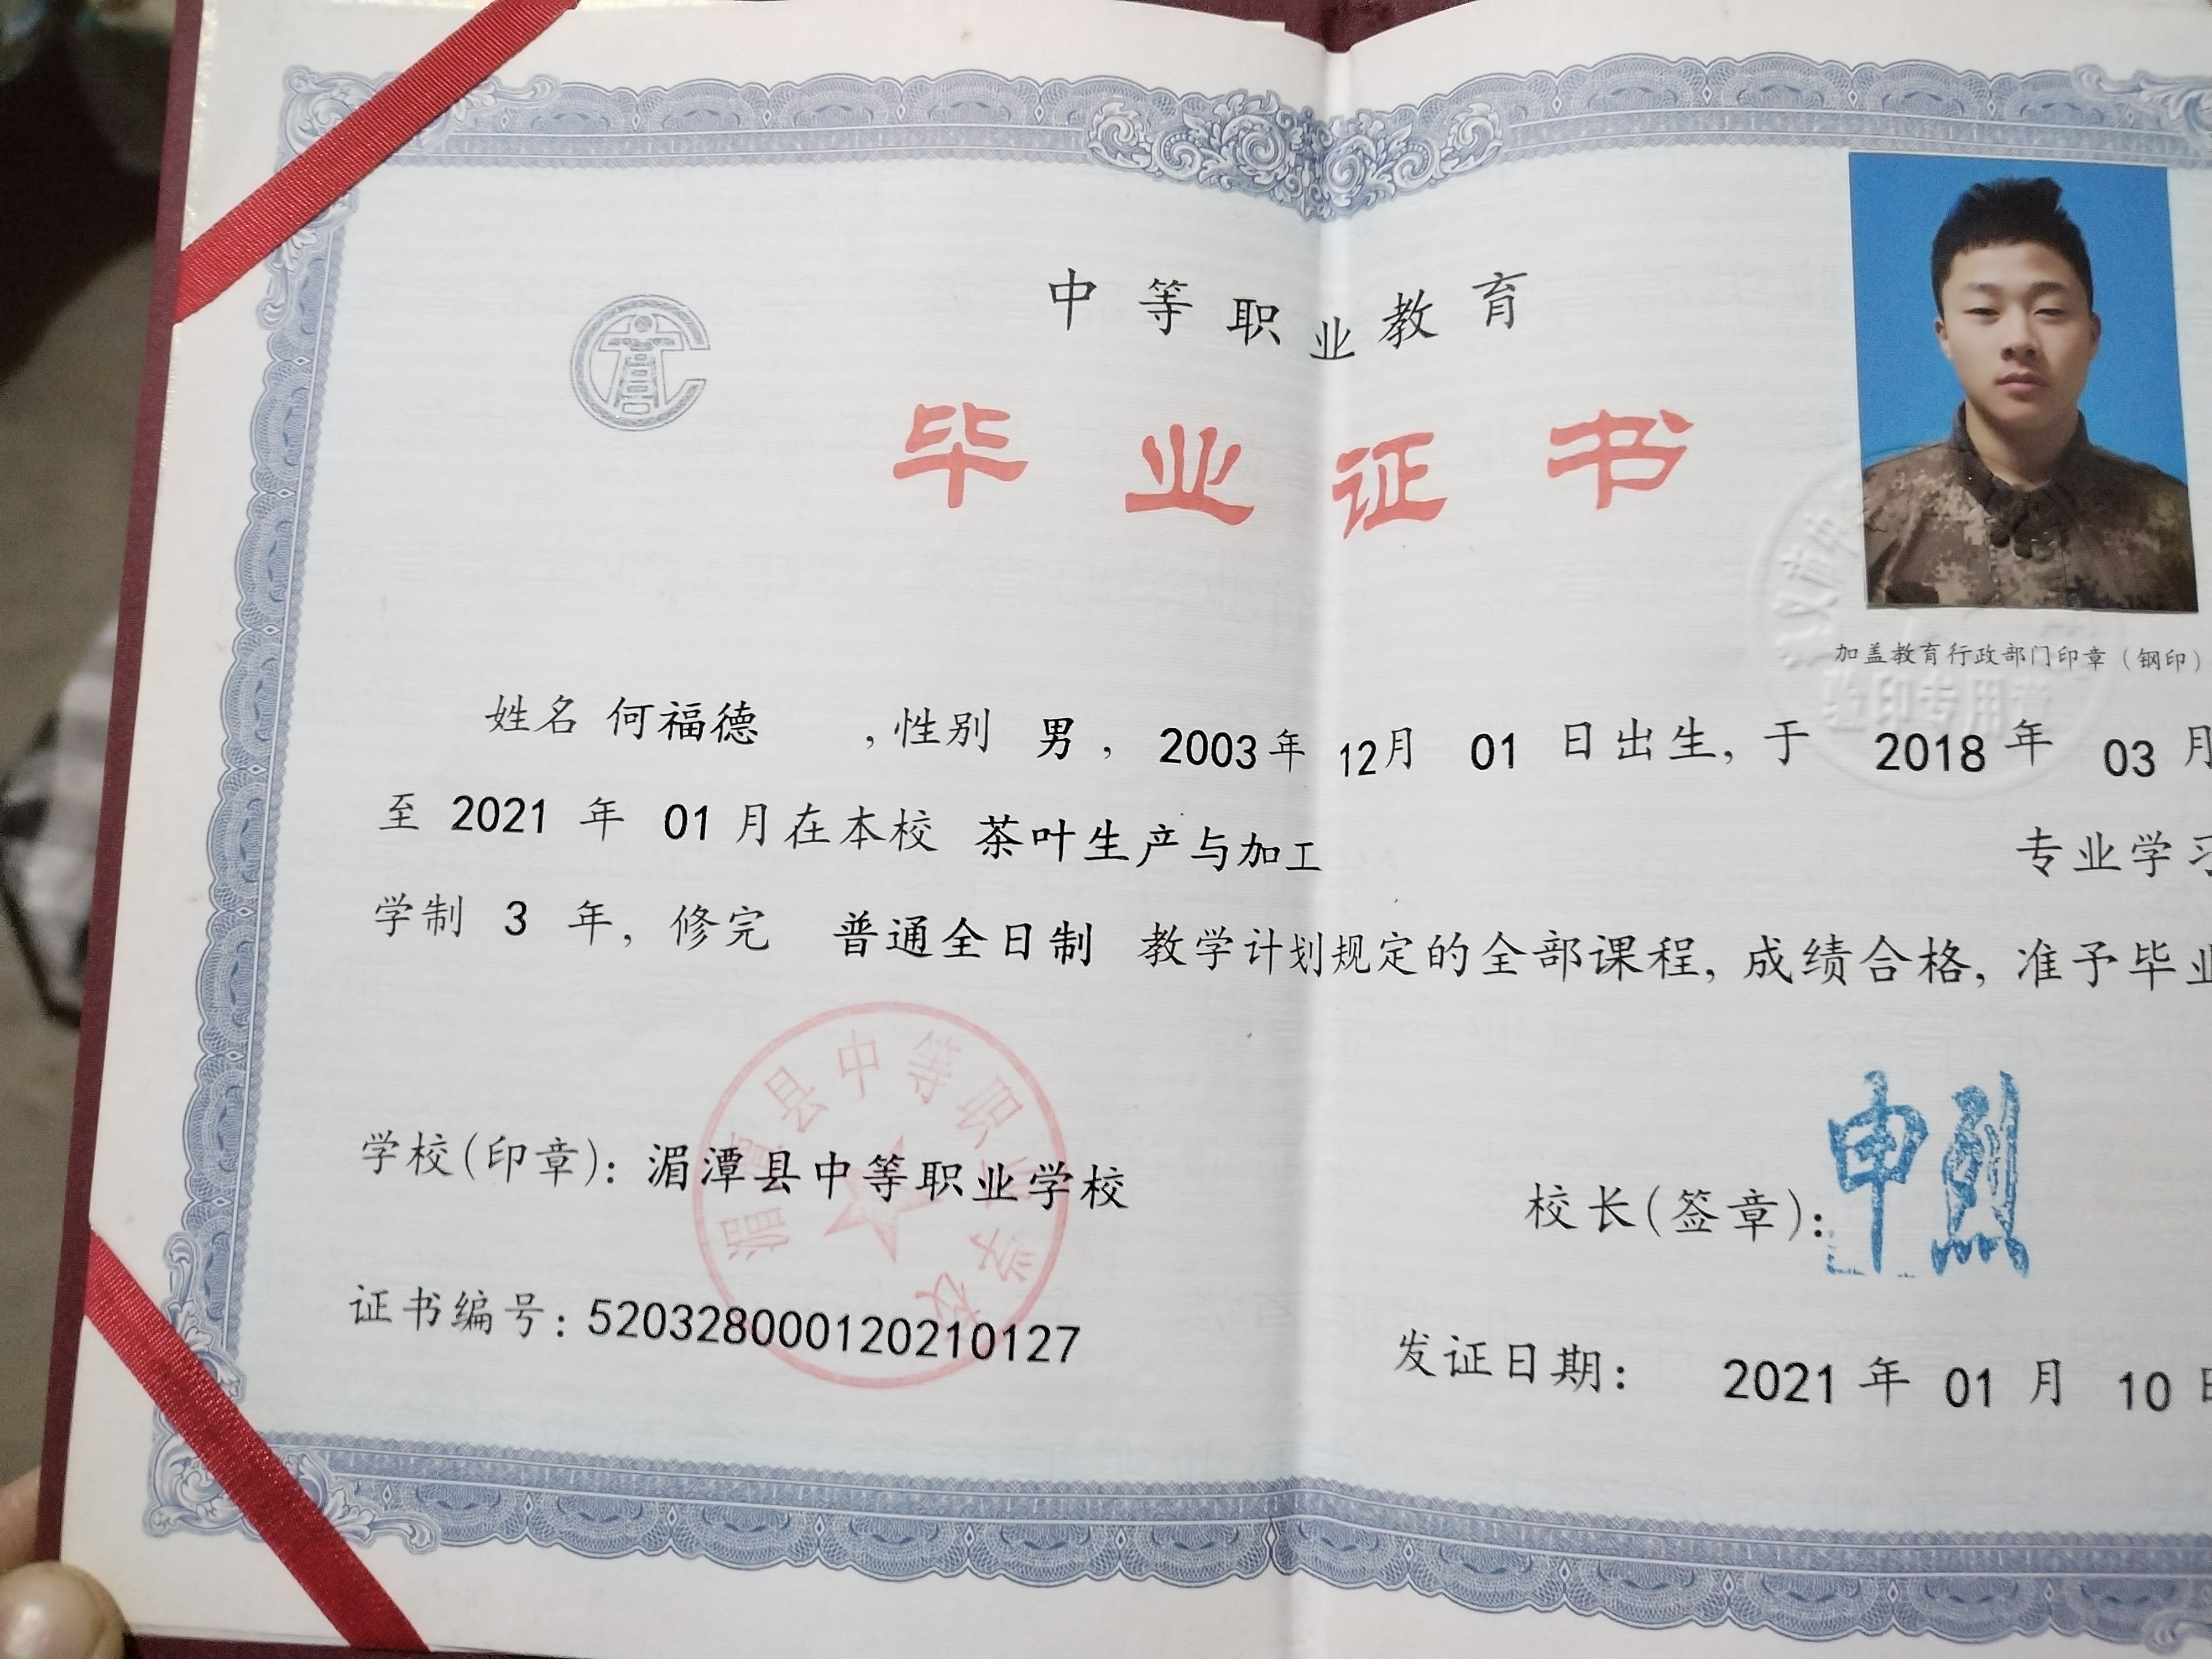 中等职业教育
毕业证书
加盖教育行政部门印章（钢印）
验印专用章
姓名 何福德 ，性别 男， 2003年 12月 01 日出生，于 2018 年 03 月
至 2021 年 01 月在本校 茶叶生产与加工 专业学习
学制 3 年，修完 普通全日制 教学计划规定的全部课程，成绩合格，准予毕业
湄潭县中等职业学校
学校（印章）：湄潭县中等职业学校
校长（签章）：申烈
证书编号：520328000120210127
发证日期： 2021 年 01 月 10 日